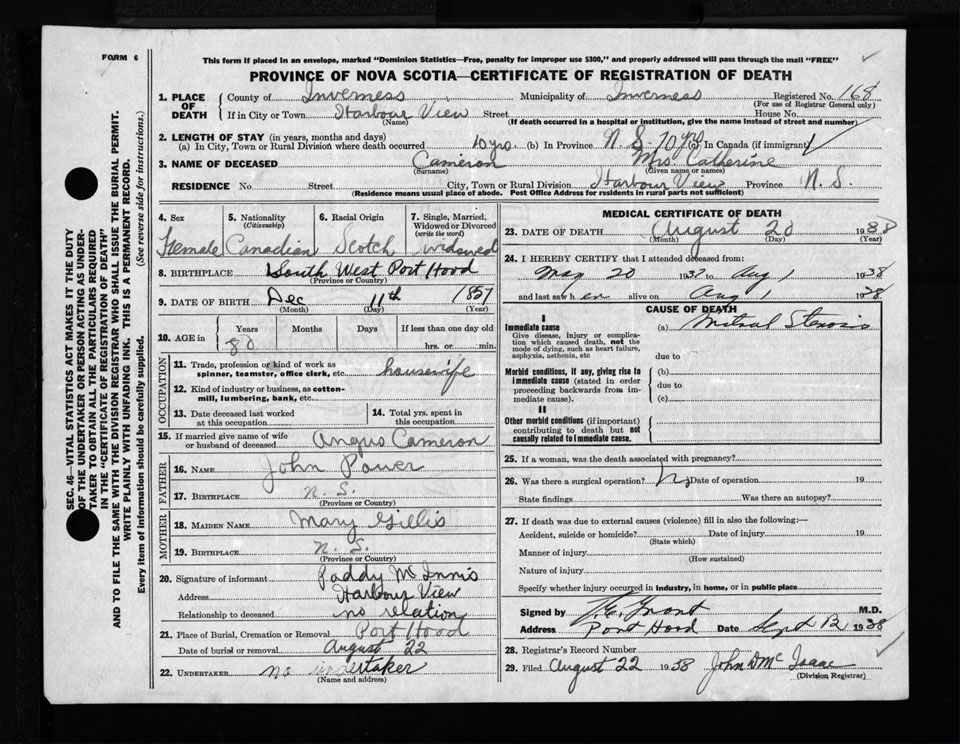 FORM 6
This form if placed in an envelope, marked "Dominion Statistics—Free, penalty for improper use $300," and properly addressed will pass through the mail "FREE"
PROVINCE OF NOVA SCOTIA—CERTIFICATE OF REGISTRATION OF DEATH
1. PLACE OF DEATH
County of Inverness Municipality of Inverness Registered No. 168
(For use of Registrar General only)
If in City or Town Harbour View Street House No.
(Name) (If death occurred in a hospital or institution, give the name instead of street and number)
2. LENGTH OF STAY (in years, months and days)
(a) In City, Town or Rural Division where death occurred 10 yrs. (b) In Province N. S. 70 yrs (c) In Canada (if immigrant)
3. NAME OF DECEASED Cameron Mrs Catherine
(Surname) (Given name or names)
RESIDENCE No. Street City, Town or Rural Division Harbour View Province N. S.
(Residence means usual place of abode. Post Office Address for residents in rural parts not sufficient)
4. Sex 5. Nationality (Citizenship) 6. Racial Origin 7. Single, Married, Widowed or Divorced (write the word)
Female Canadian Scotch widowed
8. BIRTHPLACE South West Port Hood
(Province or Country)
9. DATE OF BIRTH Dec 11th 1857
(Month) (Day) (Year)
10. AGE in Years Months Days If less than one day old
80 hrs. or min.
OCCUPATION
11. Trade, profession or kind of work as spinner, teamster, office clerk, etc. housewife
12. Kind of industry or business, as cotton-mill, lumbering, bank, etc.
13. Date deceased last worked at this occupation
14. Total yrs. spent in this occupation
15. If married give name of wife or husband of deceased Angus Cameron
FATHER
16. NAME John Power
17. BIRTHPLACE N. S.
(Province or Country)
MOTHER
18. MAIDEN NAME Mary Gillis
19. BIRTHPLACE N. S.
(Province or Country)
20. Signature of informant Paddy McInnis
Address Harbour View
Relationship to deceased no relation
21. Place of Burial, Cremation or Removal Port Hood
Date of burial or removal August 22
22. UNDERTAKER no undertaker
(Name and address)
MEDICAL CERTIFICATE OF DEATH
23. DATE OF DEATH August 20 1938
(Month) (Day) (Year)
24. I HEREBY CERTIFY that I attended deceased from:
May 20 193 to Aug 1 1938
and last saw h er alive on Aug 1 1938
CAUSE OF DEATH
I
Immediate cause (a) Mitral Stenosis
Give disease, injury or complication which caused death, not the mode of dying, such as heart failure, asphyxia, asthenia, etc
due to
Morbid conditions, if any, giving rise to immediate cause (stated in order proceeding backwards from immediate cause).
(b)
due to
(c)
II
Other morbid conditions (if important) contributing to death but not causally related to immediate cause.
25. If a woman, was the death associated with pregnancy?
26. Was there a surgical operation? No Date of operation 19
State findings Was there an autopsy?
27. If death was due to external causes (violence) fill in also the following:—
Accident, suicide or homicide? Date of injury 19
(State which)
Manner of injury
(How sustained)
Nature of injury
Specify whether injury occurred in industry, in home, or in public place
Signed by Grant M.D.
Address Port Hood Date Sept 12 1938
28. Registrar's Record Number
29. Filed August 22 1938 John D Mc Isaac
(Division Registrar)
SEC. 46—VITAL STATISTICS ACT MAKES IT THE DUTY
OF THE UNDERTAKER OR PERSON ACTING AS UNDER-
TAKER TO OBTAIN ALL THE PARTICULARS REQUIRED
IN THE "CERTIFICATE OF REGISTRATION OF DEATH"
AND TO FILE THE SAME WITH THE DIVISION REGISTRAR WHO SHALL ISSUE THE BURIAL PERMIT.
WRITE PLAINLY WITH UNFADING INK. THIS IS A PERMANENT RECORD.
Every item of information should be carefully supplied. (See reverse side for instructions.)